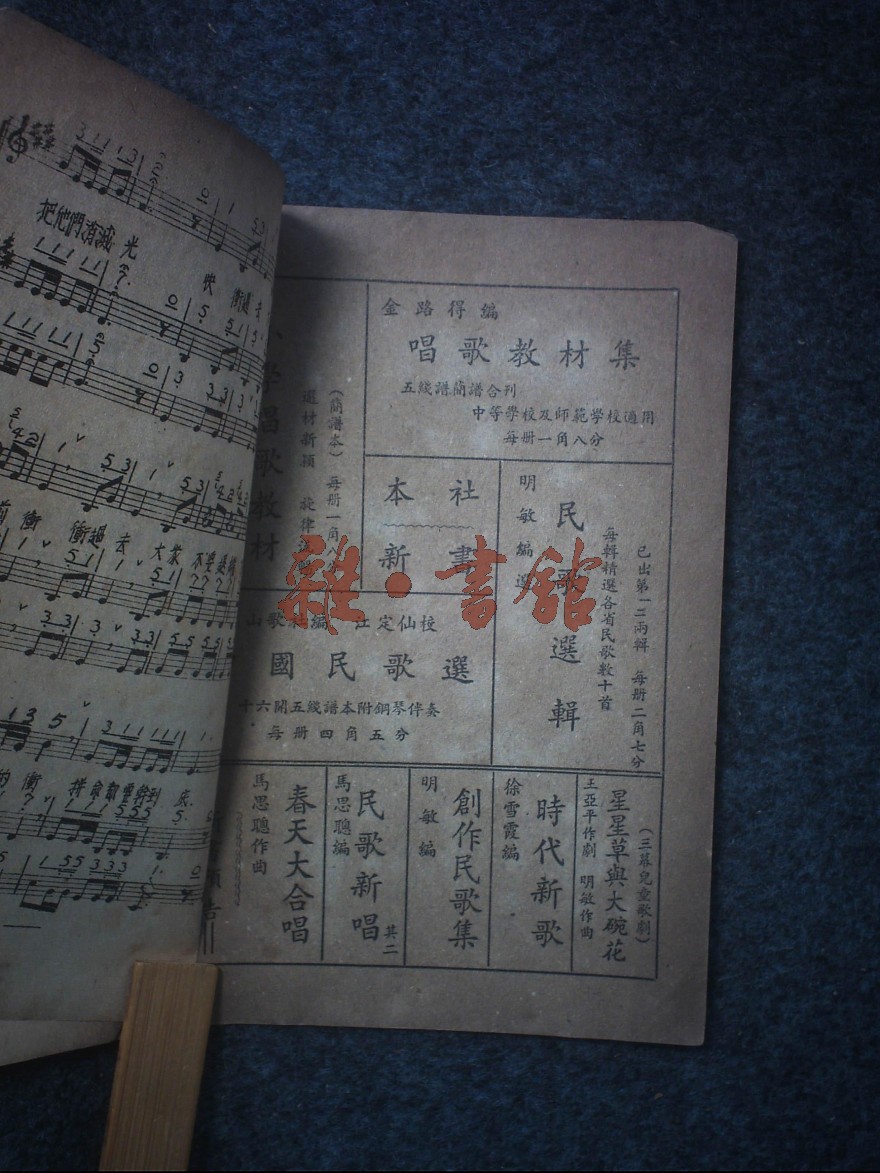 把他們消滅光
快 衝過去
前衝 衝過去 大衆不要退
的衝 拚命
金路得編
唱歌教材集
五綫譜簡譜合刊
中等學校及師範學校適用
每册一角八分
本社
新書
民歌選輯
明敏編選
每輯精選各省民歌數十首
已出第一二兩輯 每册二角七分
學唱歌教材
選材新穎 旋律
(簡譜本) 每册一角八分
山歌社編 江定仙校
國民歌選
十六開五綫譜本附鋼琴伴奏
每册四角五分
(三幕兒童歌劇)
星星草與大碗花
王亞平作劇 明敏作曲
時代新歌
徐雪霞編
創作民歌集
明敏編
民歌新唱 其二
馬思聰編
春天大合唱
馬思聰作曲
告
雜·書館